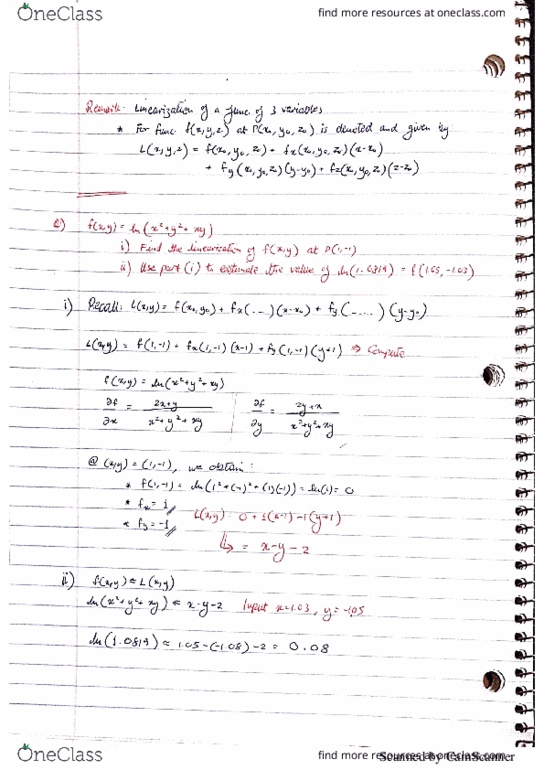 OneClass
find more resources at oneclass.com
Remark: Linearization of a func. of 3 variables
* For func f(x,y,z) at P(x₀, y₀, z₀) is denoted and given by
L(x,y,z) = f(x₀, y₀, z₀) + fx(x₀, y₀, z₀)(x-x₀)
+ fy(x₀, y₀, z₀)(y-y₀) + fz(x₀, y₀, z₀)(z-z₀)
f(x,y) = ln(x²+y²+xy)
i) Find the linearization of f(x,y) at P(1,-1)
ii) Use part (i) to estimate the value of ln(1.0819) = f(1.05, -1.03)
i) Recall: L(x,y) = f(x₀, y₀) + fx(...)(x-x₀) + fy(.....)(y-y₀)
L(x,y) = f(1,-1) + fx(1,-1)(x-1) + fy(1,-1)(y+1) ⇒ Compute
f(x,y) = ln(x²+y²+xy)
∂f/∂x = 2x+y / x²+y²+xy | ∂f/∂y = 2y+x / x²+y²+xy
@ (x,y) = (1,-1), we obtain:
* f(1,-1) = ln(1²+(-1)²+(1)(-1)) = ln(1) = 0
* fx = 1
L(x,y) = 0+1(x-1)-1(y+1)
* fy = -1
↳ = x-y-2
ii) f(x,y) ≈ L(x,y)
ln(x²+y²+xy) ≈ x-y-2 Input x=1.03, y=-1.05
ln(1.0819) ≈ 1.05-(-1.03)-2 = 0.08
OneClass
find more resources at oneclass.com
Scanned by CamScanner